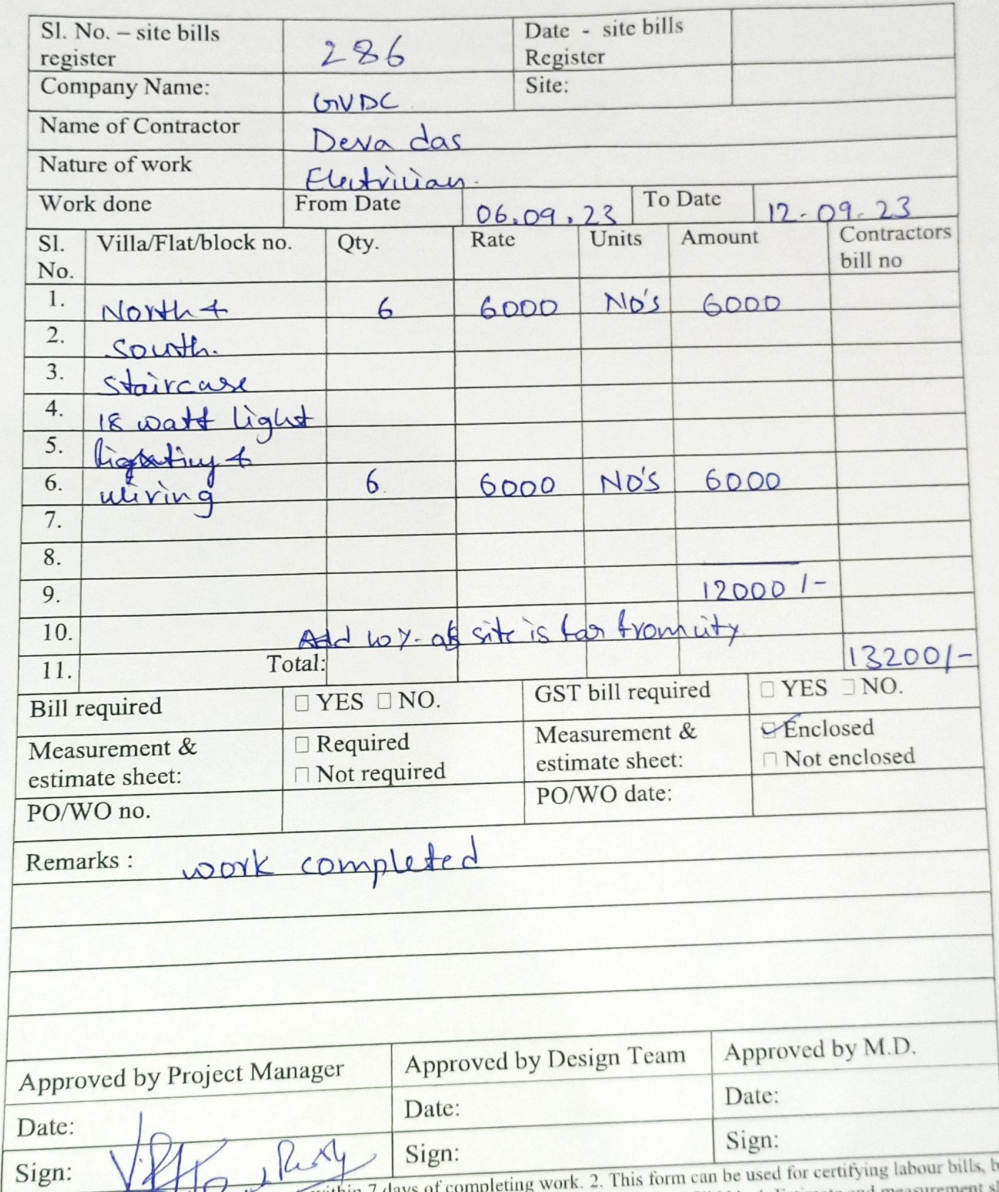 Sl. No. – site bills register 286 Date - site bills Register
Company Name: GVDC Site:
Name of Contractor Deva das
Nature of work Electrician.
Work done From Date 06.09.23 To Date 12-09-23
Sl. No. Villa/Flat/block no. Qty. Rate Units Amount Contractors bill no
1. North + 6 6000 No's 6000
2. South.
3. Staircase
4. 18 watt light
5. +
6. wiring 6 6000 No's 6000
7.
8.
9. 12000/-
10. Add 10%- as site is far from city
11. Total: 13200/-
Bill required □ YES □ NO. GST bill required □ YES □ NO.
Measurement & estimate sheet: □ Required □ Not required Measurement & estimate sheet: ☑ Enclosed □ Not enclosed
PO/WO no. PO/WO date:
Remarks : work completed
Approved by Project Manager Approved by Design Team Approved by M.D.
Date: Date: Date:
Sign: Sign: Sign:
within 7 days of completing work. 2. This form can be used for certifying labour bills, b